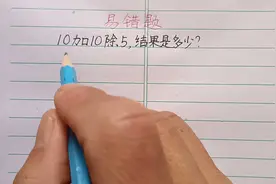 易错题
10加10除5,结果是多少?